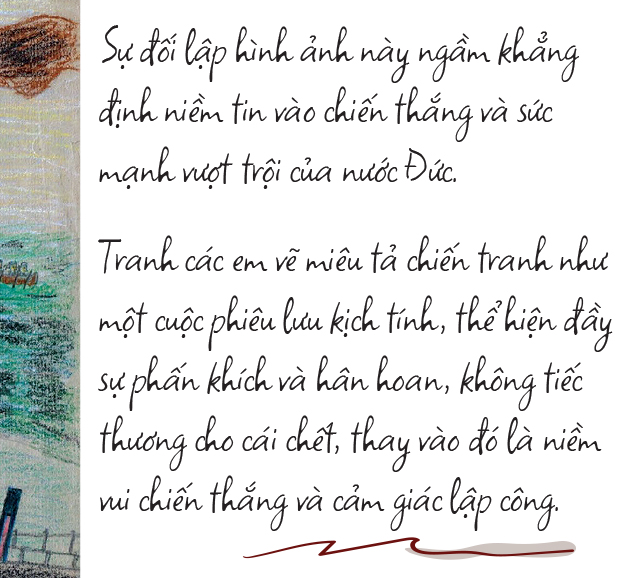 Sự đối lập hình ảnh này ngầm khẳng
định niềm tin vào chiến thắng và sức
mạnh vượt trội của nước Đức.
Tranh các em vẽ miêu tả chiến tranh như
một cuộc phiêu lưu kịch tính, thể hiện đầy
sự phấn khích và hân hoan, không tiếc
thương cho cái chết, thay vào đó là niềm
vui chiến thắng và cảm giác lập công.